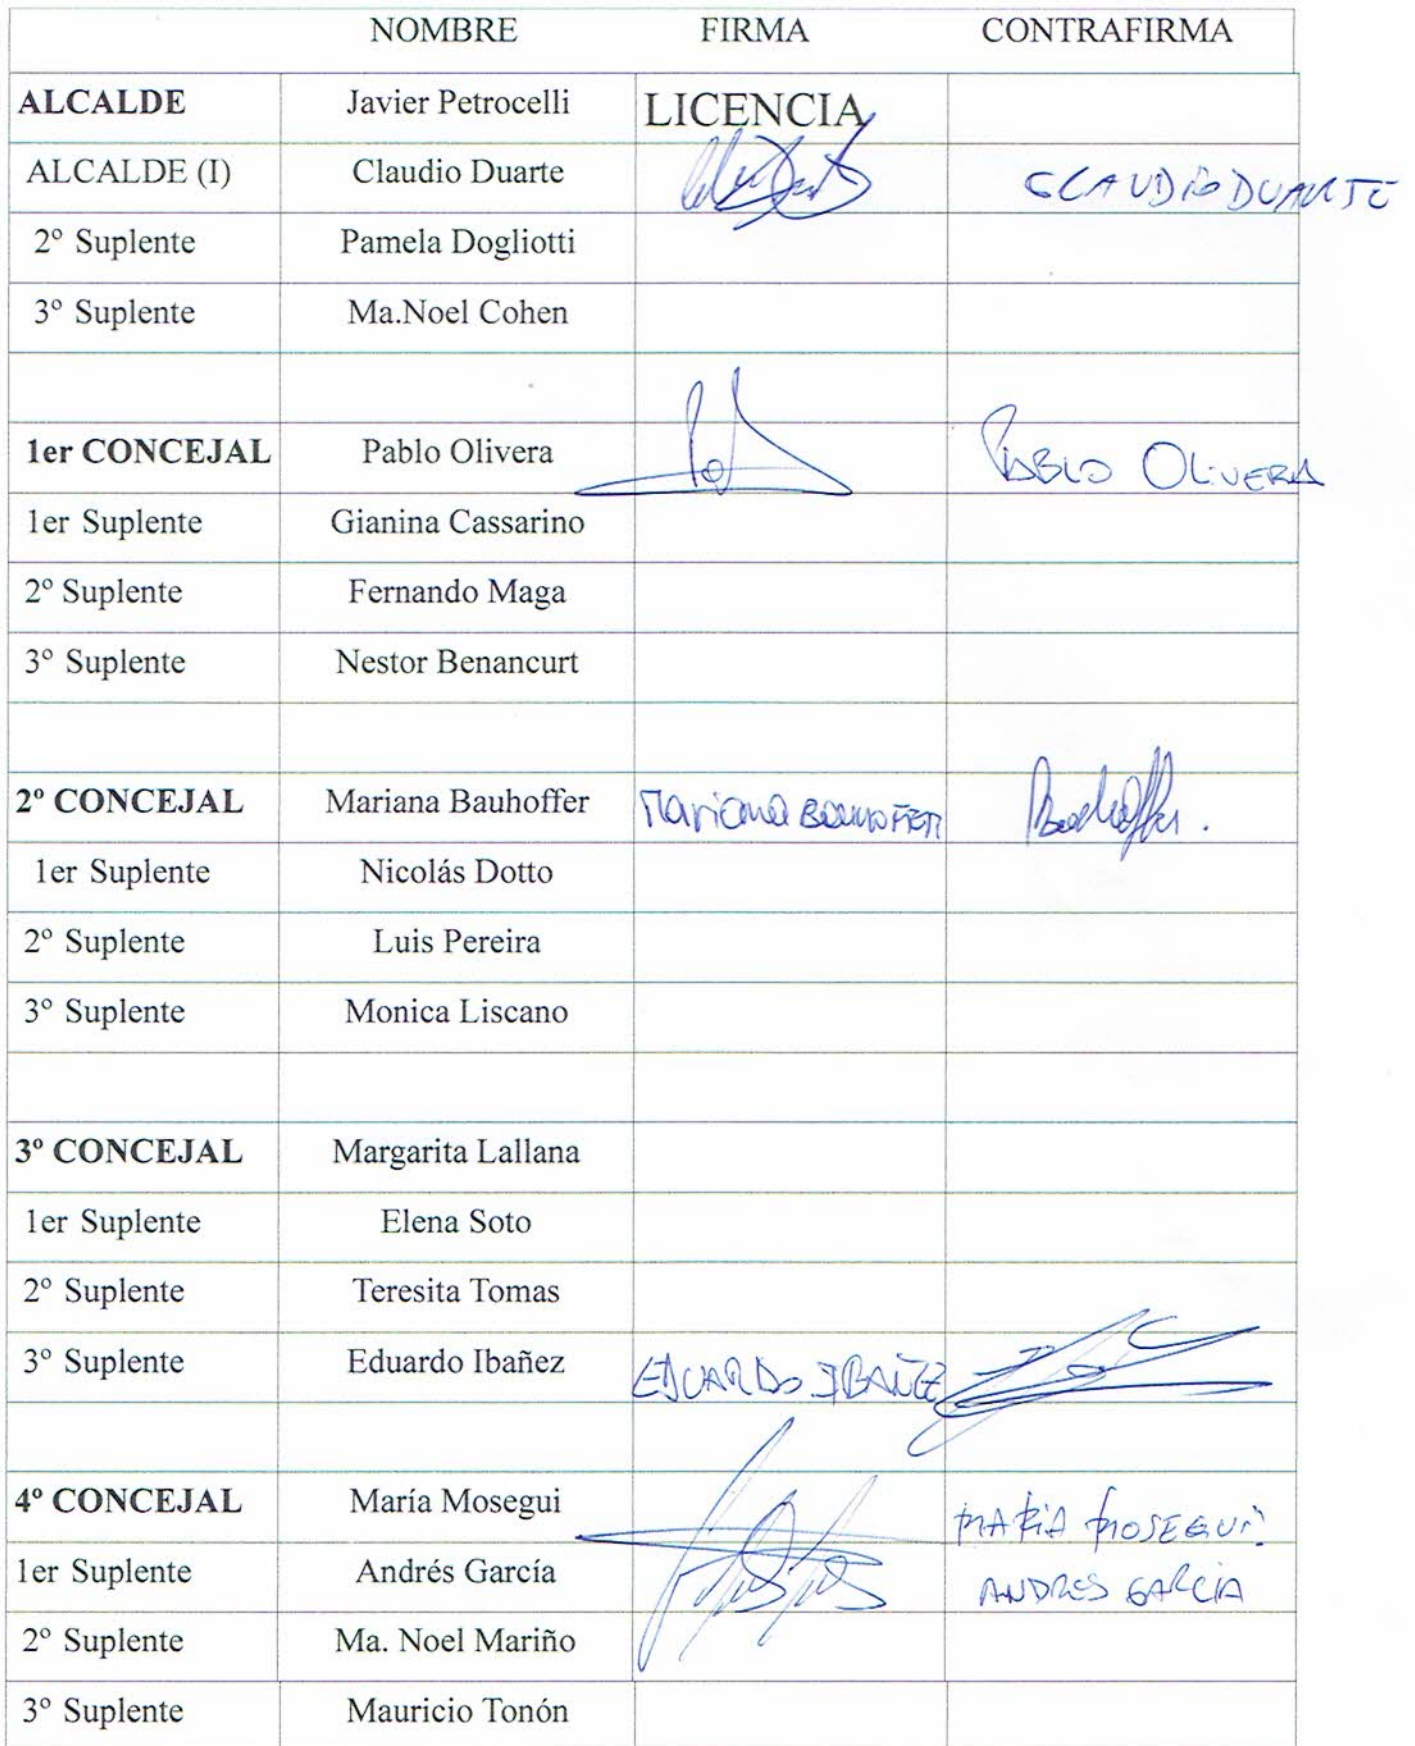 NOMBRE FIRMA CONTRAFIRMA
ALCALDE Javier Petrocelli LICENCIA
ALCALDE (I) Claudio Duarte CLAUDIO DUARTE
2º Suplente Pamela Dogliotti
3º Suplente Ma.Noel Cohen
1er CONCEJAL Pablo Olivera PABLO OLIVERA
1er Suplente Gianina Cassarino
2º Suplente Fernando Maga
3º Suplente Nestor Benancurt
2º CONCEJAL Mariana Bauhoffer Mariana BAUHOFFER Bauhoffer.
1er Suplente Nicolás Dotto
2º Suplente Luis Pereira
3º Suplente Monica Liscano
3º CONCEJAL Margarita Lallana
1er Suplente Elena Soto
2º Suplente Teresita Tomas
3º Suplente Eduardo Ibañez EDUARDO IBAÑEZ
4º CONCEJAL María Mosegui MARIA MOSEGUI
1er Suplente Andrés García ANDRES GARCIA
2º Suplente Ma. Noel Mariño
3º Suplente Mauricio Tonón